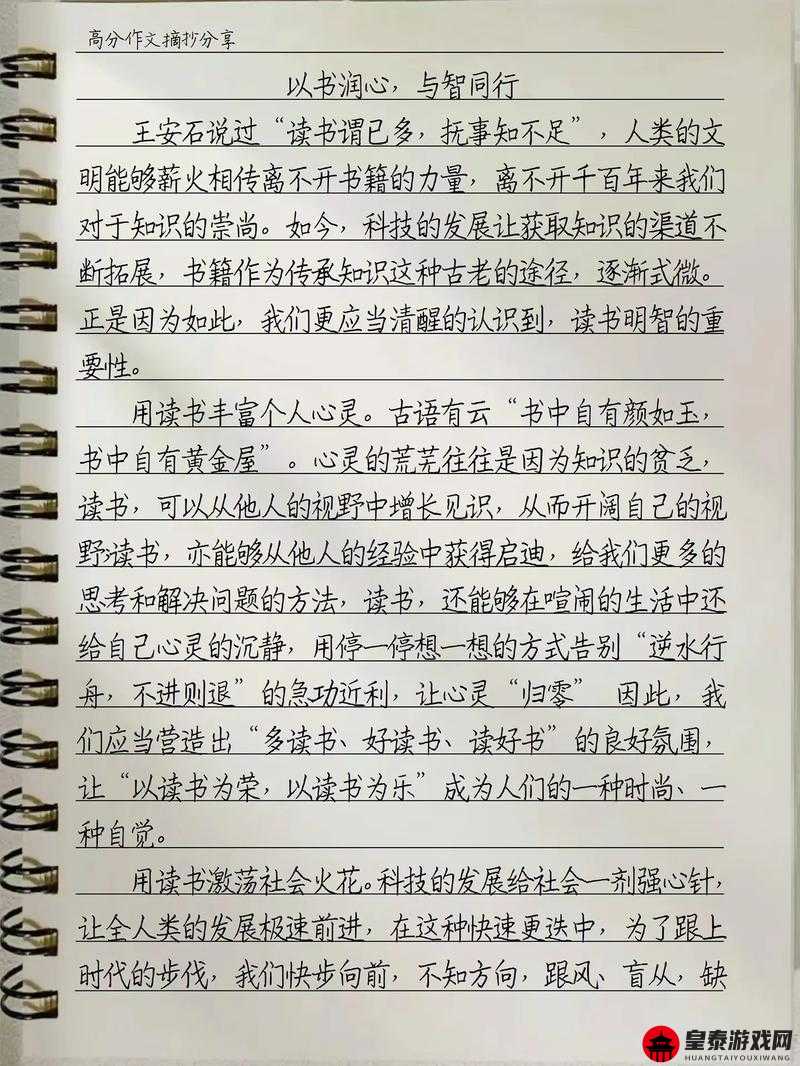 高分作文摘抄分享
以书润心，与智同行
王安石说过“读书谓已多，抚事知不足”，人类的文
明能够薪火相传离不开书籍的力量，离不开千百年来我们
对于知识的崇尚。如今，科技的发展让获取知识的渠道不
断拓展，书籍作为传承知识这种古老的途径，逐渐式微。
正是因为如此，我们更应当清醒的认识到，读书明智的重
要性。
用读书丰富个人心灵。古语有云“书中自有颜如玉，
书中自有黄金屋”。心灵的荒芜往往是因为知识的贫乏，
读书，可以从他人的视野中增长见识，从而开阔自己的视
野；读书，亦能够从他人的经验中获得启迪，给我们更多的
思考和解决问题的方法，读书，还能够在喧闹的生活中还
给自己心灵的沉静，用停一停想一想的方式告别“逆水行
舟，不进则退”的急功近利，让心灵“归零” 因此，我
们应当营造出“多读书、好读书、读好书”的良好氛围，
让“以读书为荣，以读书为乐”成为人们的一种时尚、一
种自觉。
用读书激荡社会火花。科技的发展给社会一剂强心针，
让全人类的发展极速前进，在这种快速更迭中，为了跟上
时代的步伐，我们快步向前，不知方向，跟风、盲从，缺
皇泰游戏网
HUANGTAIYOUXIWANG